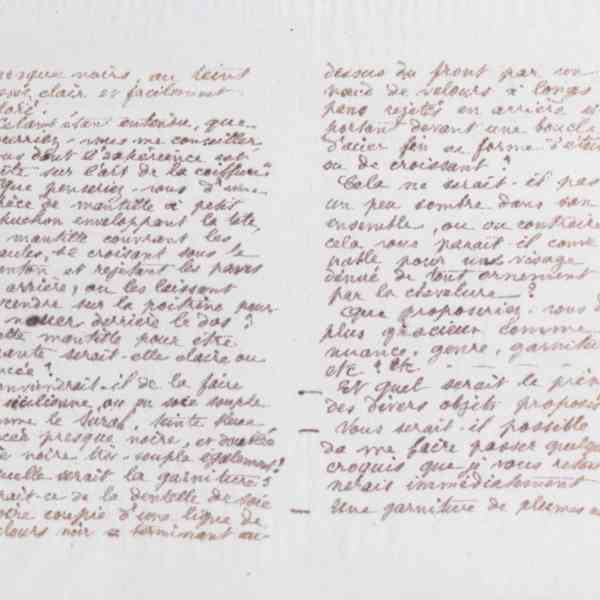 presque noirs, au teint
assez clair et facilement
coloré.
Cela étant entendu, que
pourriez-vous me conseiller
vous dont l'expérience est
faite sur l'art de la coiffure
Que penseriez-vous d'une
espèce de mantille à petit
capuchon enveloppant la tête,
mantille couvrant les
épaules, se croisant sous le
menton et rejetant les pans
arrière, ou les laissant
descendre sur la poitrine pour
nouer derrière le dos?
Cette mantille pour être
serait-elle claire ou
foncée?
Conviendrait-il de la faire
sicilienne, ou en soie souple
comme le Surah, teinte bleue
foncée presque noire, et doublée
de noire très souple également?
Quelle serait la garniture?
Serait-ce de la dentelle de soie
noire coupée d'une ligne de
velours noir se terminant au-
dessus du front par un
nœud de velours à longs
pans rejetés en arrière et
portant devant une boucle
d'acier fin en forme d'étoile
ou de croissant?
Cela ne serait-il pas
un peu sombre dans son
ensemble, ou au contraire
cela vous paraît-il conve
nable pour un visage
dénué de tout ornement
par la chevelure?
Que proposeriez-vous de
plus gracieux comme
nuance, genre, garniture
etc? etc.
Et quel serait le prix
des divers objets proposés
Vous serait-il possible
de me faire passer quelques
croquis que je vous retour
nerais immédiatement
Une garniture de plumes